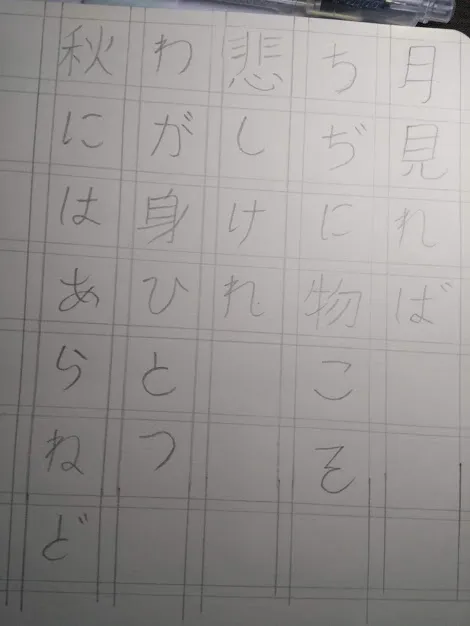 月見れば
ちぢに物こそ
悲しけれ
わが身ひとつ
秋にはあらねど